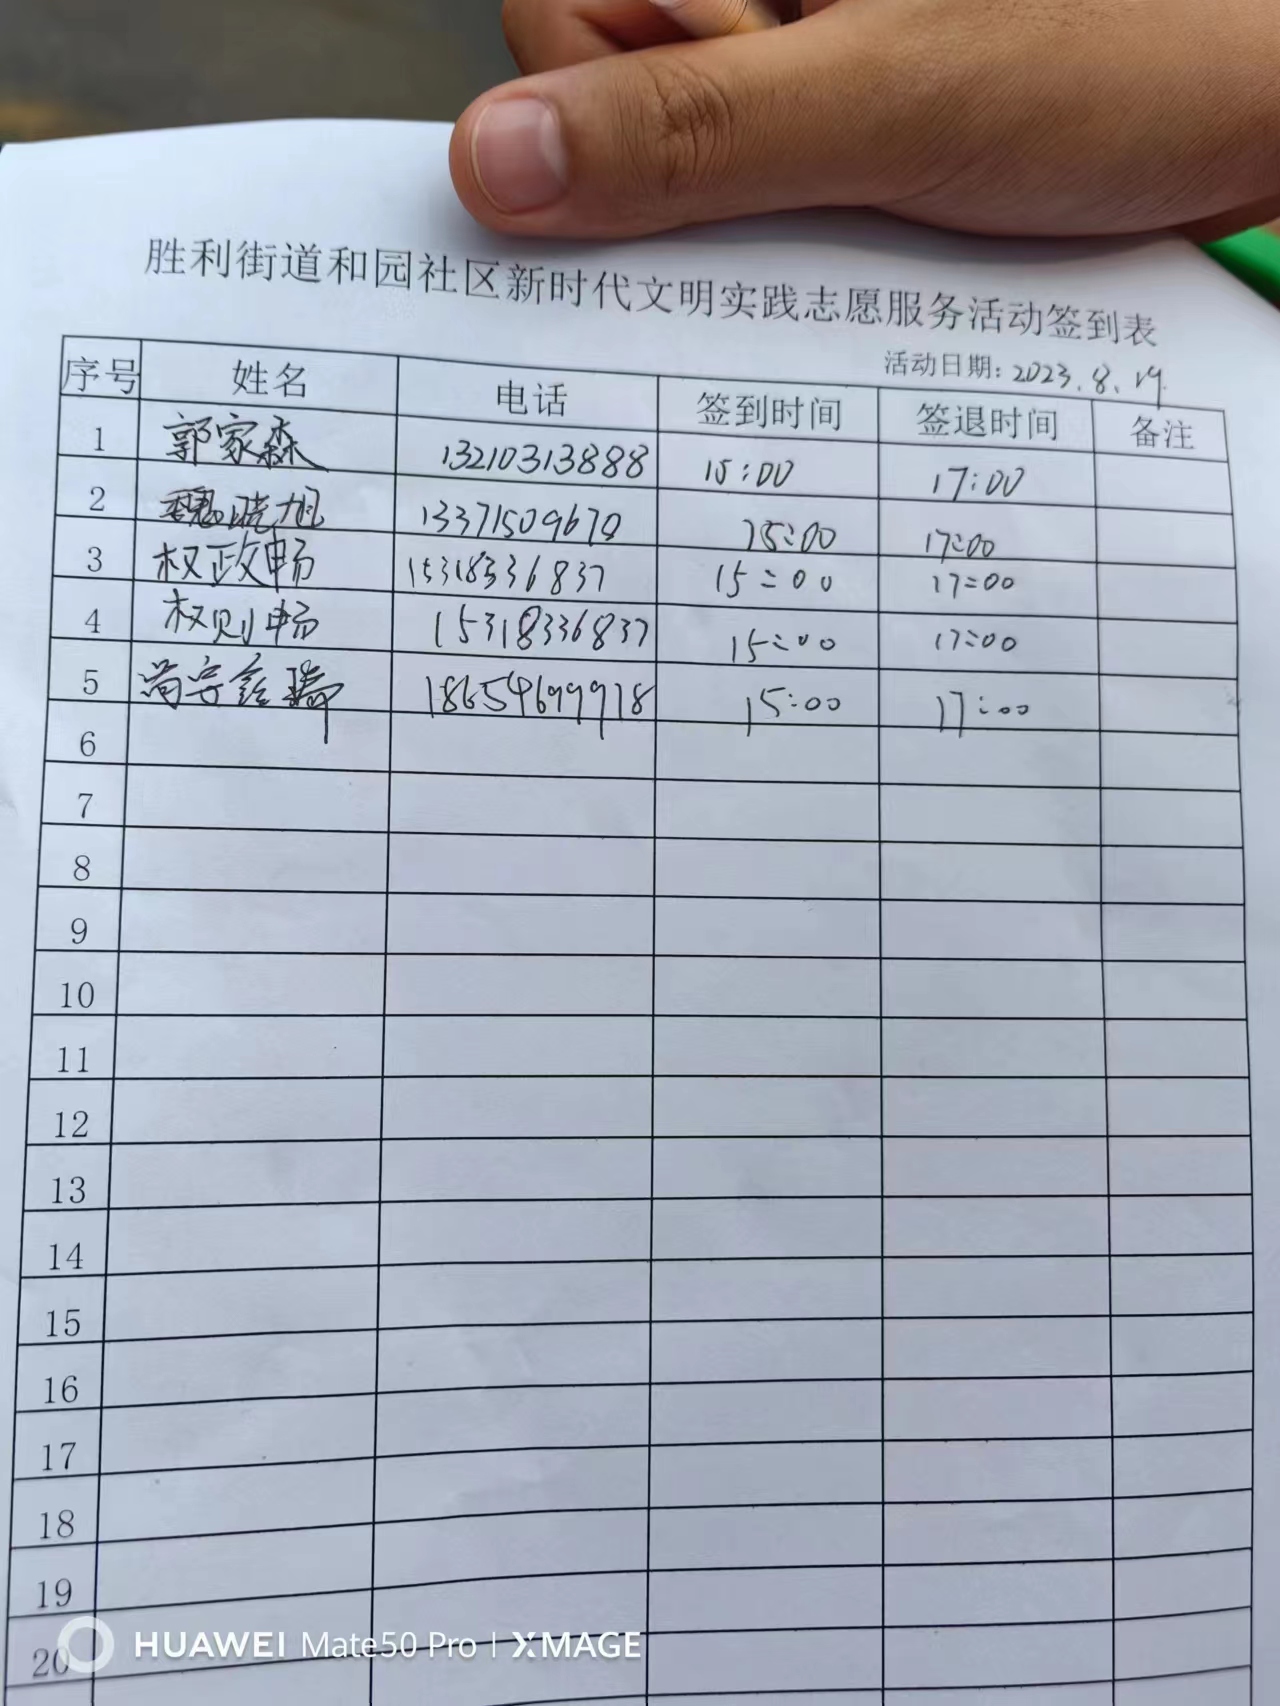 胜利街道和园社区新时代文明实践志愿服务活动签到表
活动日期: 2023.8.19.
序号 姓名 电话 签到时间 签退时间 备注
1 郭家森 13210313888 15:00 17:00
2 魏晓旭 13371509670 15:00 17:00
3 权政畅 15318336837 15:00 17:00
4 权则畅 15318336837 15:00 17:00
5 尚 18654699918 15:00 17:00
6
7
8
9
10
11
12
13
14
15
16
17
18
19
20
HUAWEI Mate50 Pro | XMAGE